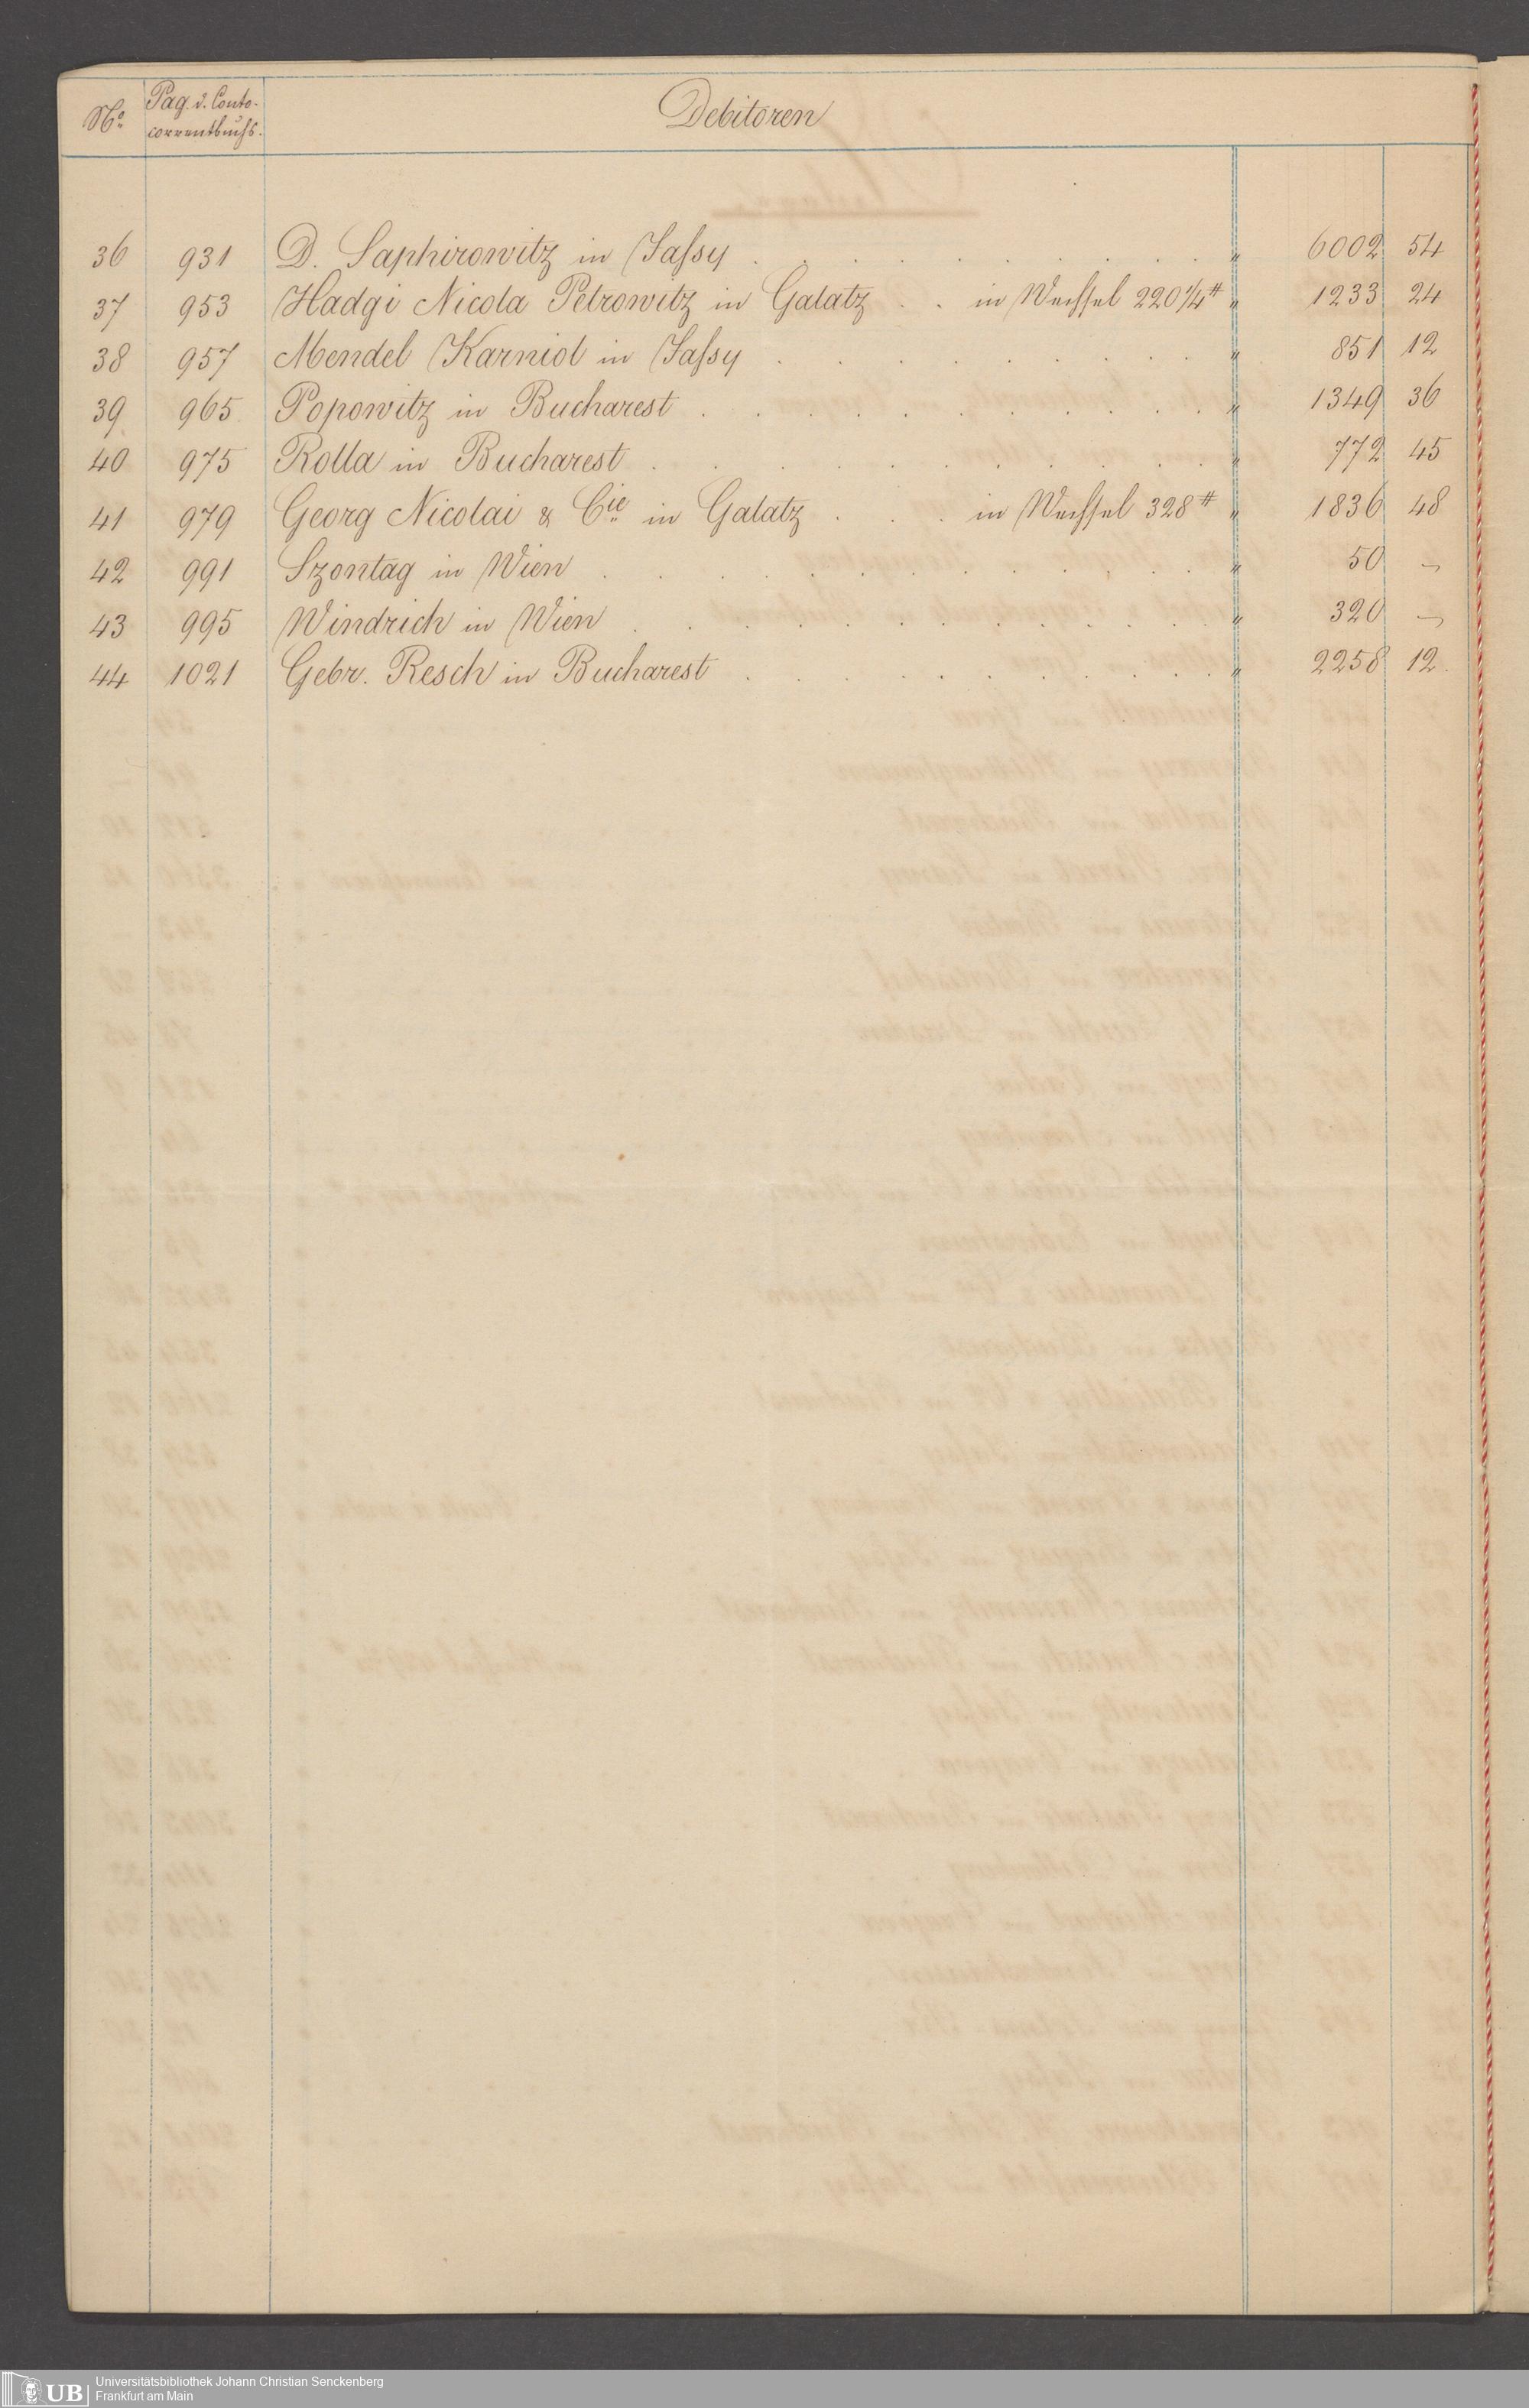 No. Pag. d. Conto-correntbuchs. Debitoren
36 931 D. Saphirowitz in Jaſsy . . . . . . . . . " 6002 54
37 953 Hadgi Nicola Petrowitz in Galatz . . in Wechsel 220 1/4 # " 1233 24
38 957 Mendel Karniol in Jaſsy . . . . . . . . . " 851 12
39 965 Popowitz in Bucharest . . . . . . . . . . " 1349 36
40 975 Rolla in Bucharest . . . . . . . . . . . " 772 45
41 979 Georg Nicolai & Cie in Galatz . . . in Wechsel 328 # " 1836 48
42 991 Szontag in Wien . . . . . . . . . . . " 50 -
43 995 Windrich in Wien . . . . . . . . . . . " 320 -
44 1021 Gebr. Resch in Bucharest . . . . . . . . . . " 2258 12.
UB Universitätsbibliothek Johann Christian Senckenberg
Frankfurt am Main